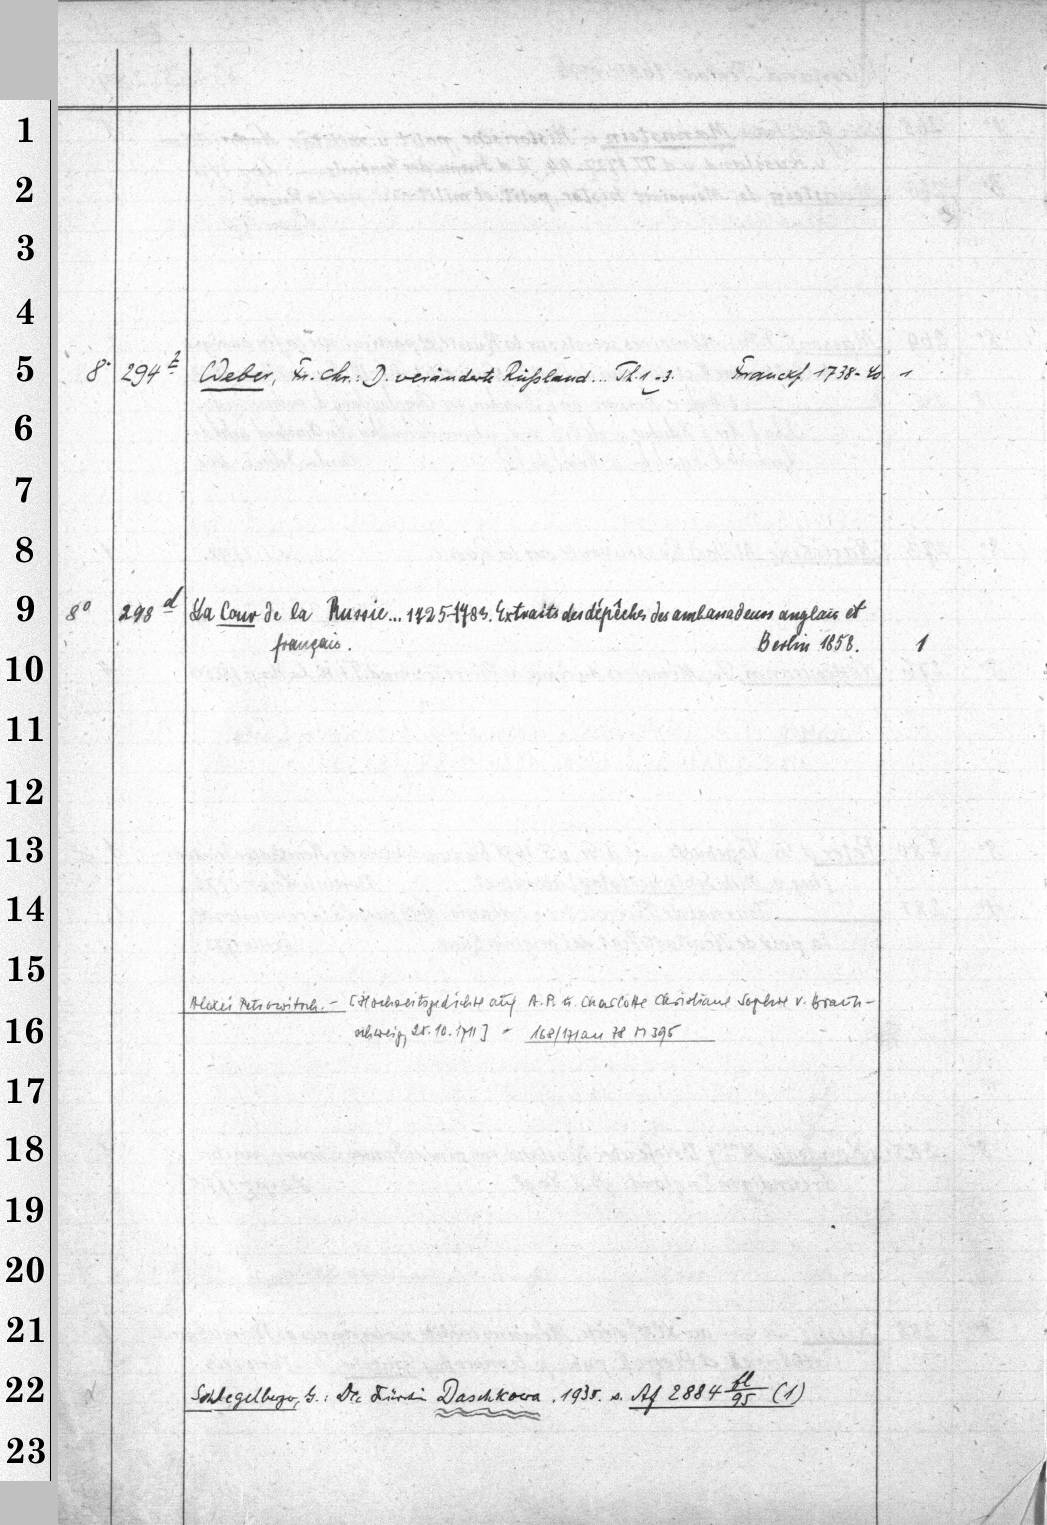 1
2
3
4
8° 294 z Weber, Fr. Chr.: D. veränderte Rußland... Th. 1-3. Franckf 1738-40. 1
5
6
7
8
8° 298 d La Cour de la Russie... 1725-1783. Extraits des dépêches des ambassadeurs anglais et
9
français. Berlin 1858. 1
10
11
12
13
14
15
Alexei Petrowitsch. - [Hochzeitsgedichte auf A. P. u. Charlotte Christiane Sophie v. Braun-
schweig, 25.10.1711] - 168/171 an 78 M 395
16
17
18
19
20
21
Schlegelberger, G.: Die Fürstin Daschkowa. 1935. s. Af 2884 fl/95 (1)
22
23